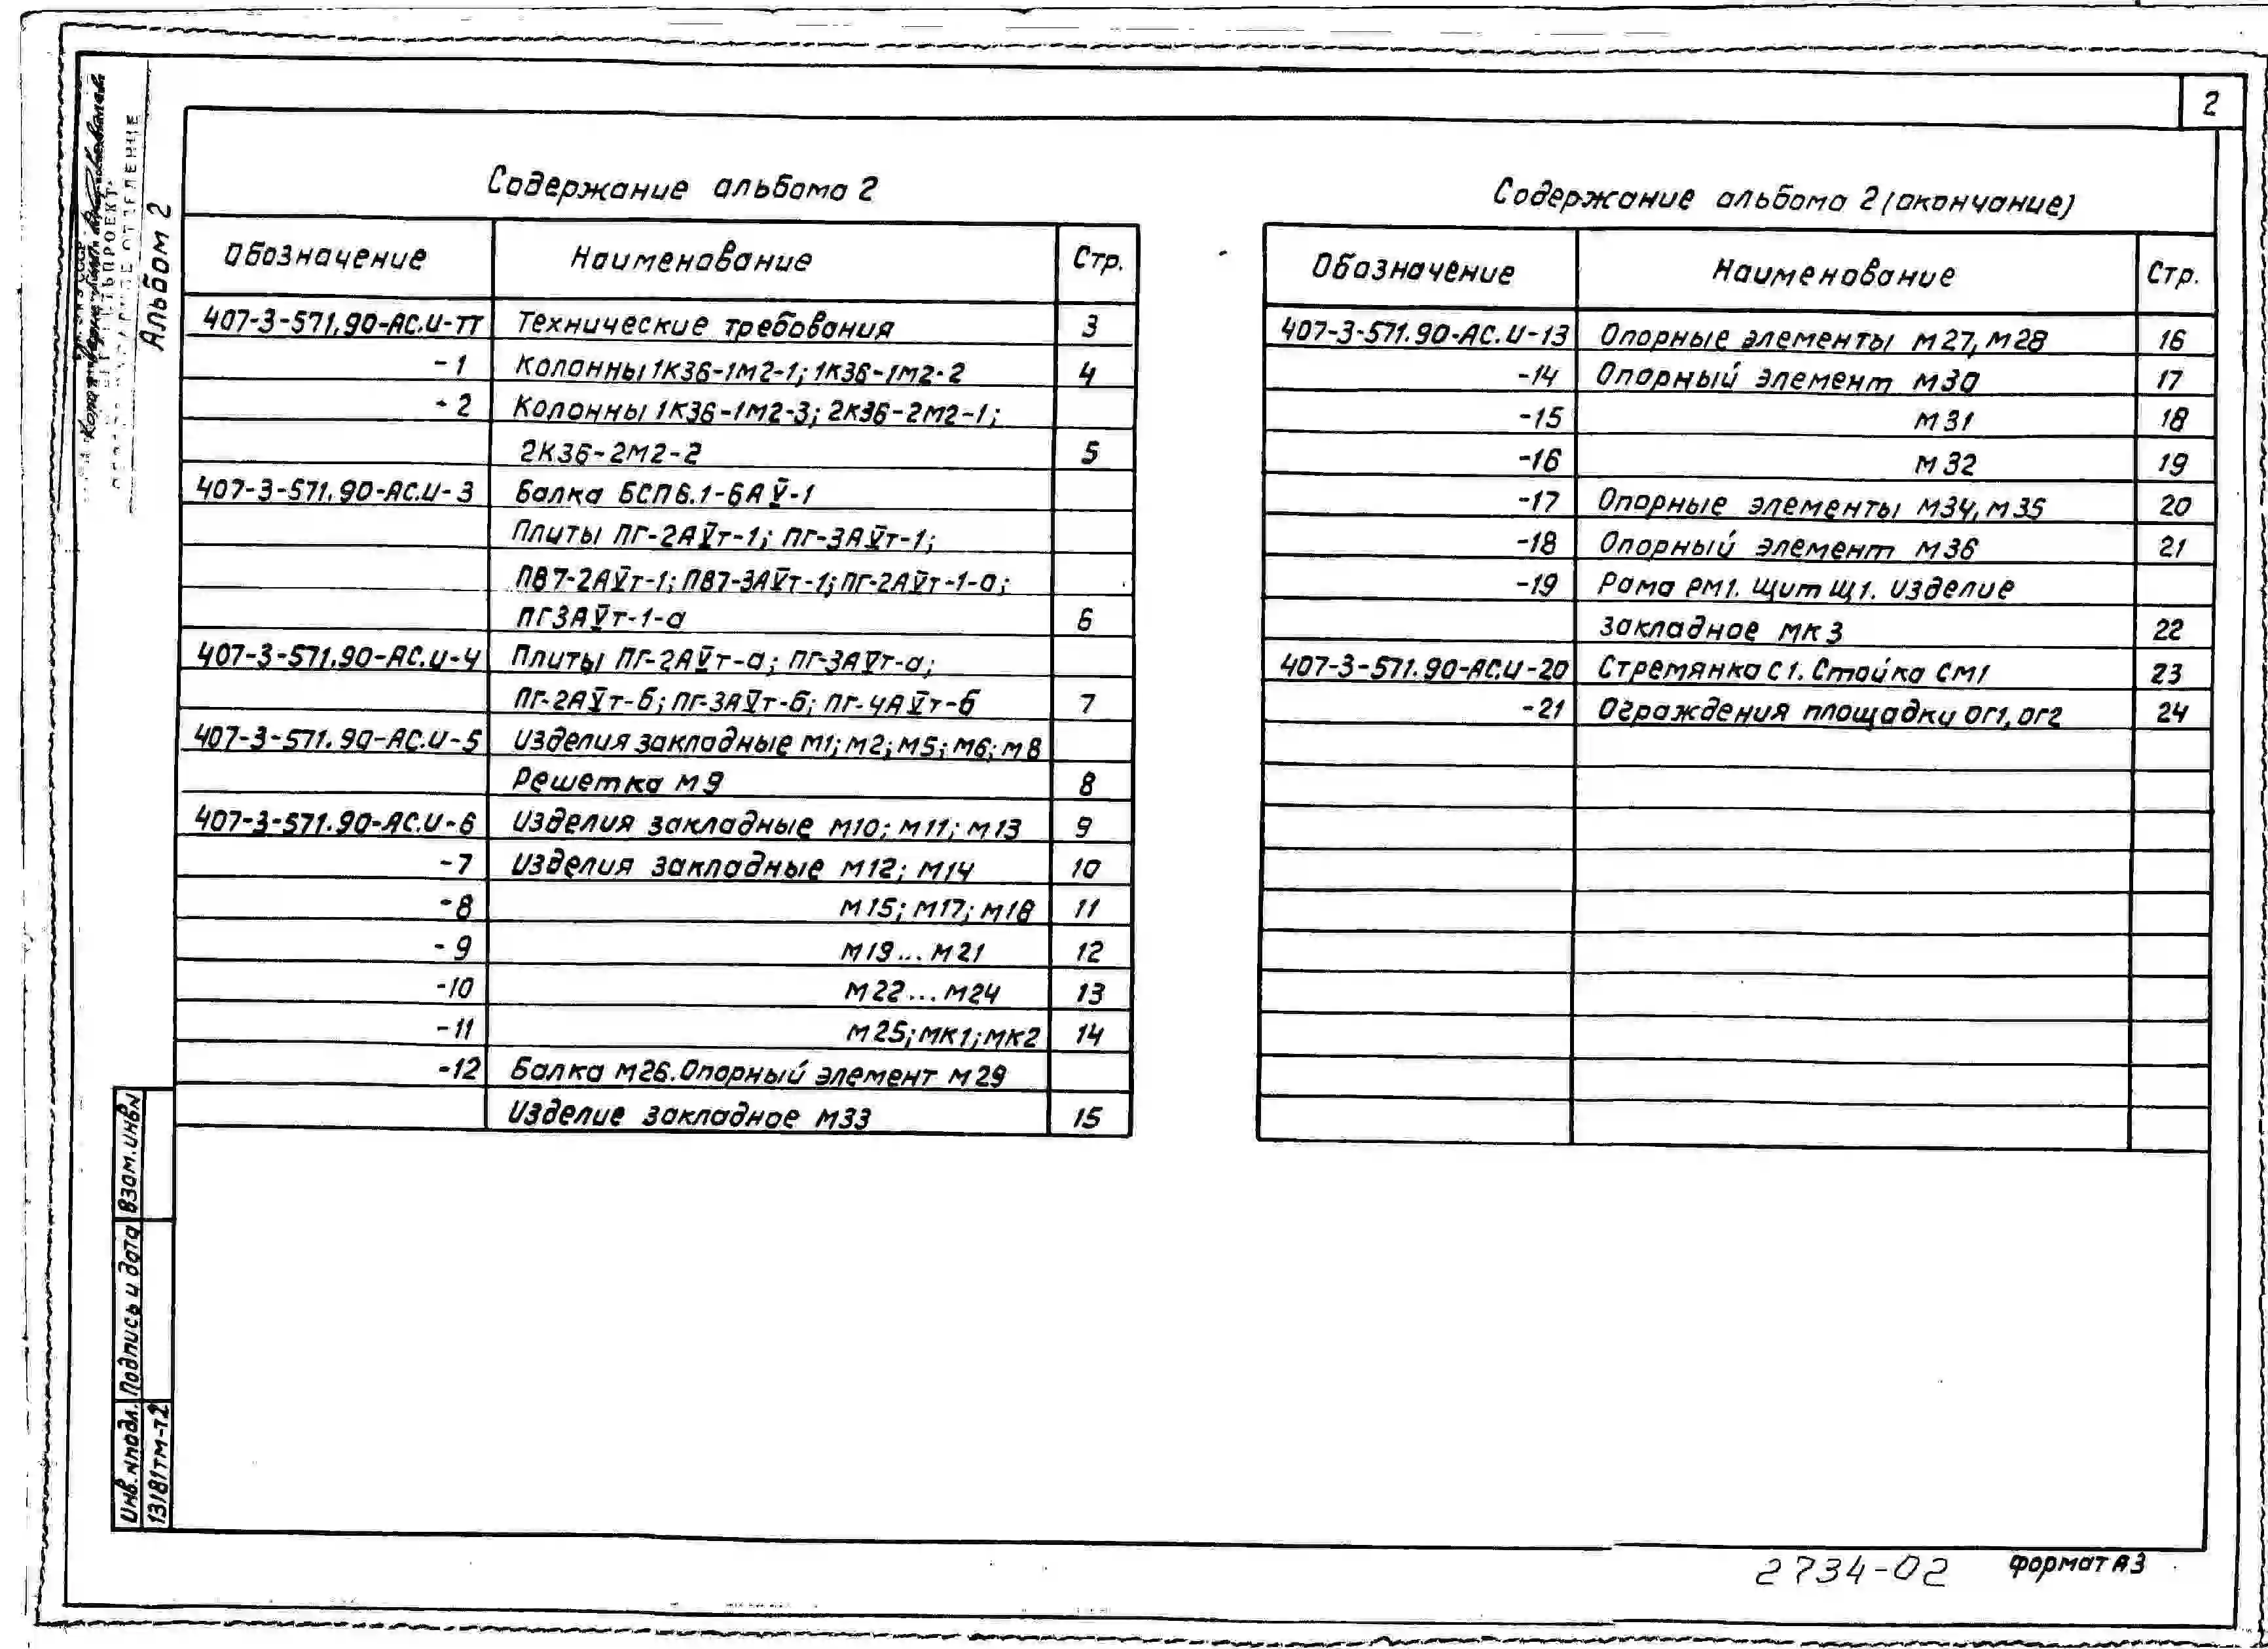 2
Содержание альбома 2
Обозначение Наименование Стр.
407-3-571.90-АС.И-ТТ Технические требования 3
-1 Колонны 1К36-1М2-1; 1К36-1М2-2 4
-2 Колонны 1К36-1М2-3; 2К36-2М2-1;
2К36-2М2-2 5
407-3-571.90-АС.И-3 Балка БСП6.1-6АV-1
Плиты ПГ-2АVт-1; ПГ-3АVт-1;
ПВ7-2АVт-1; ПВ7-3АVт-1; ПГ-2АVт-1-а;
ПГ3АVт-1-а 6
407-3-571.90-АС.И-4 Плиты ПГ-2АVт-а; ПГ-3АVт-а;
ПГ-2АVт-б; ПГ-3АVт-б; ПГ-4АVт-б 7
407-3-571.90-АС.И-5 Изделия закладные М1; М2; М5; М6; М8
Решетка М9 8
407-3-571.90-АС.И-6 Изделия закладные М10; М11; М13 9
-7 Изделия закладные М12; М14 10
-8 М15; М17; М18 11
-9 М19... М21 12
-10 М22... М24 13
-11 М25; МК1; МК2 14
-12 Балка М26. Опорный элемент М29
Изделие закладное М33 15
Содержание альбома 2 (окончание)
Обозначение Наименование Стр.
407-3-571.90-АС.И-13 Опорные элементы М27, М28 16
-14 Опорный элемент М30 17
-15 М31 18
-16 М32 19
-17 Опорные элементы М34, М35 20
-18 Опорный элемент М36 21
-19 Рама РМ1. Щит Щ1. Изделие
закладное МК3 22
407-3-571.90-АС.И-20 Стремянка С1. Стойка СМ1 23
-21 Ограждения площадки ОГ1, ОГ2 24
Альбом 2
ОТДЕЛЕНИЕ
Взам.инвN
Подпись и дата
Инв.Nподл.
13181ТМ-Т2
2734-02
Формат А3